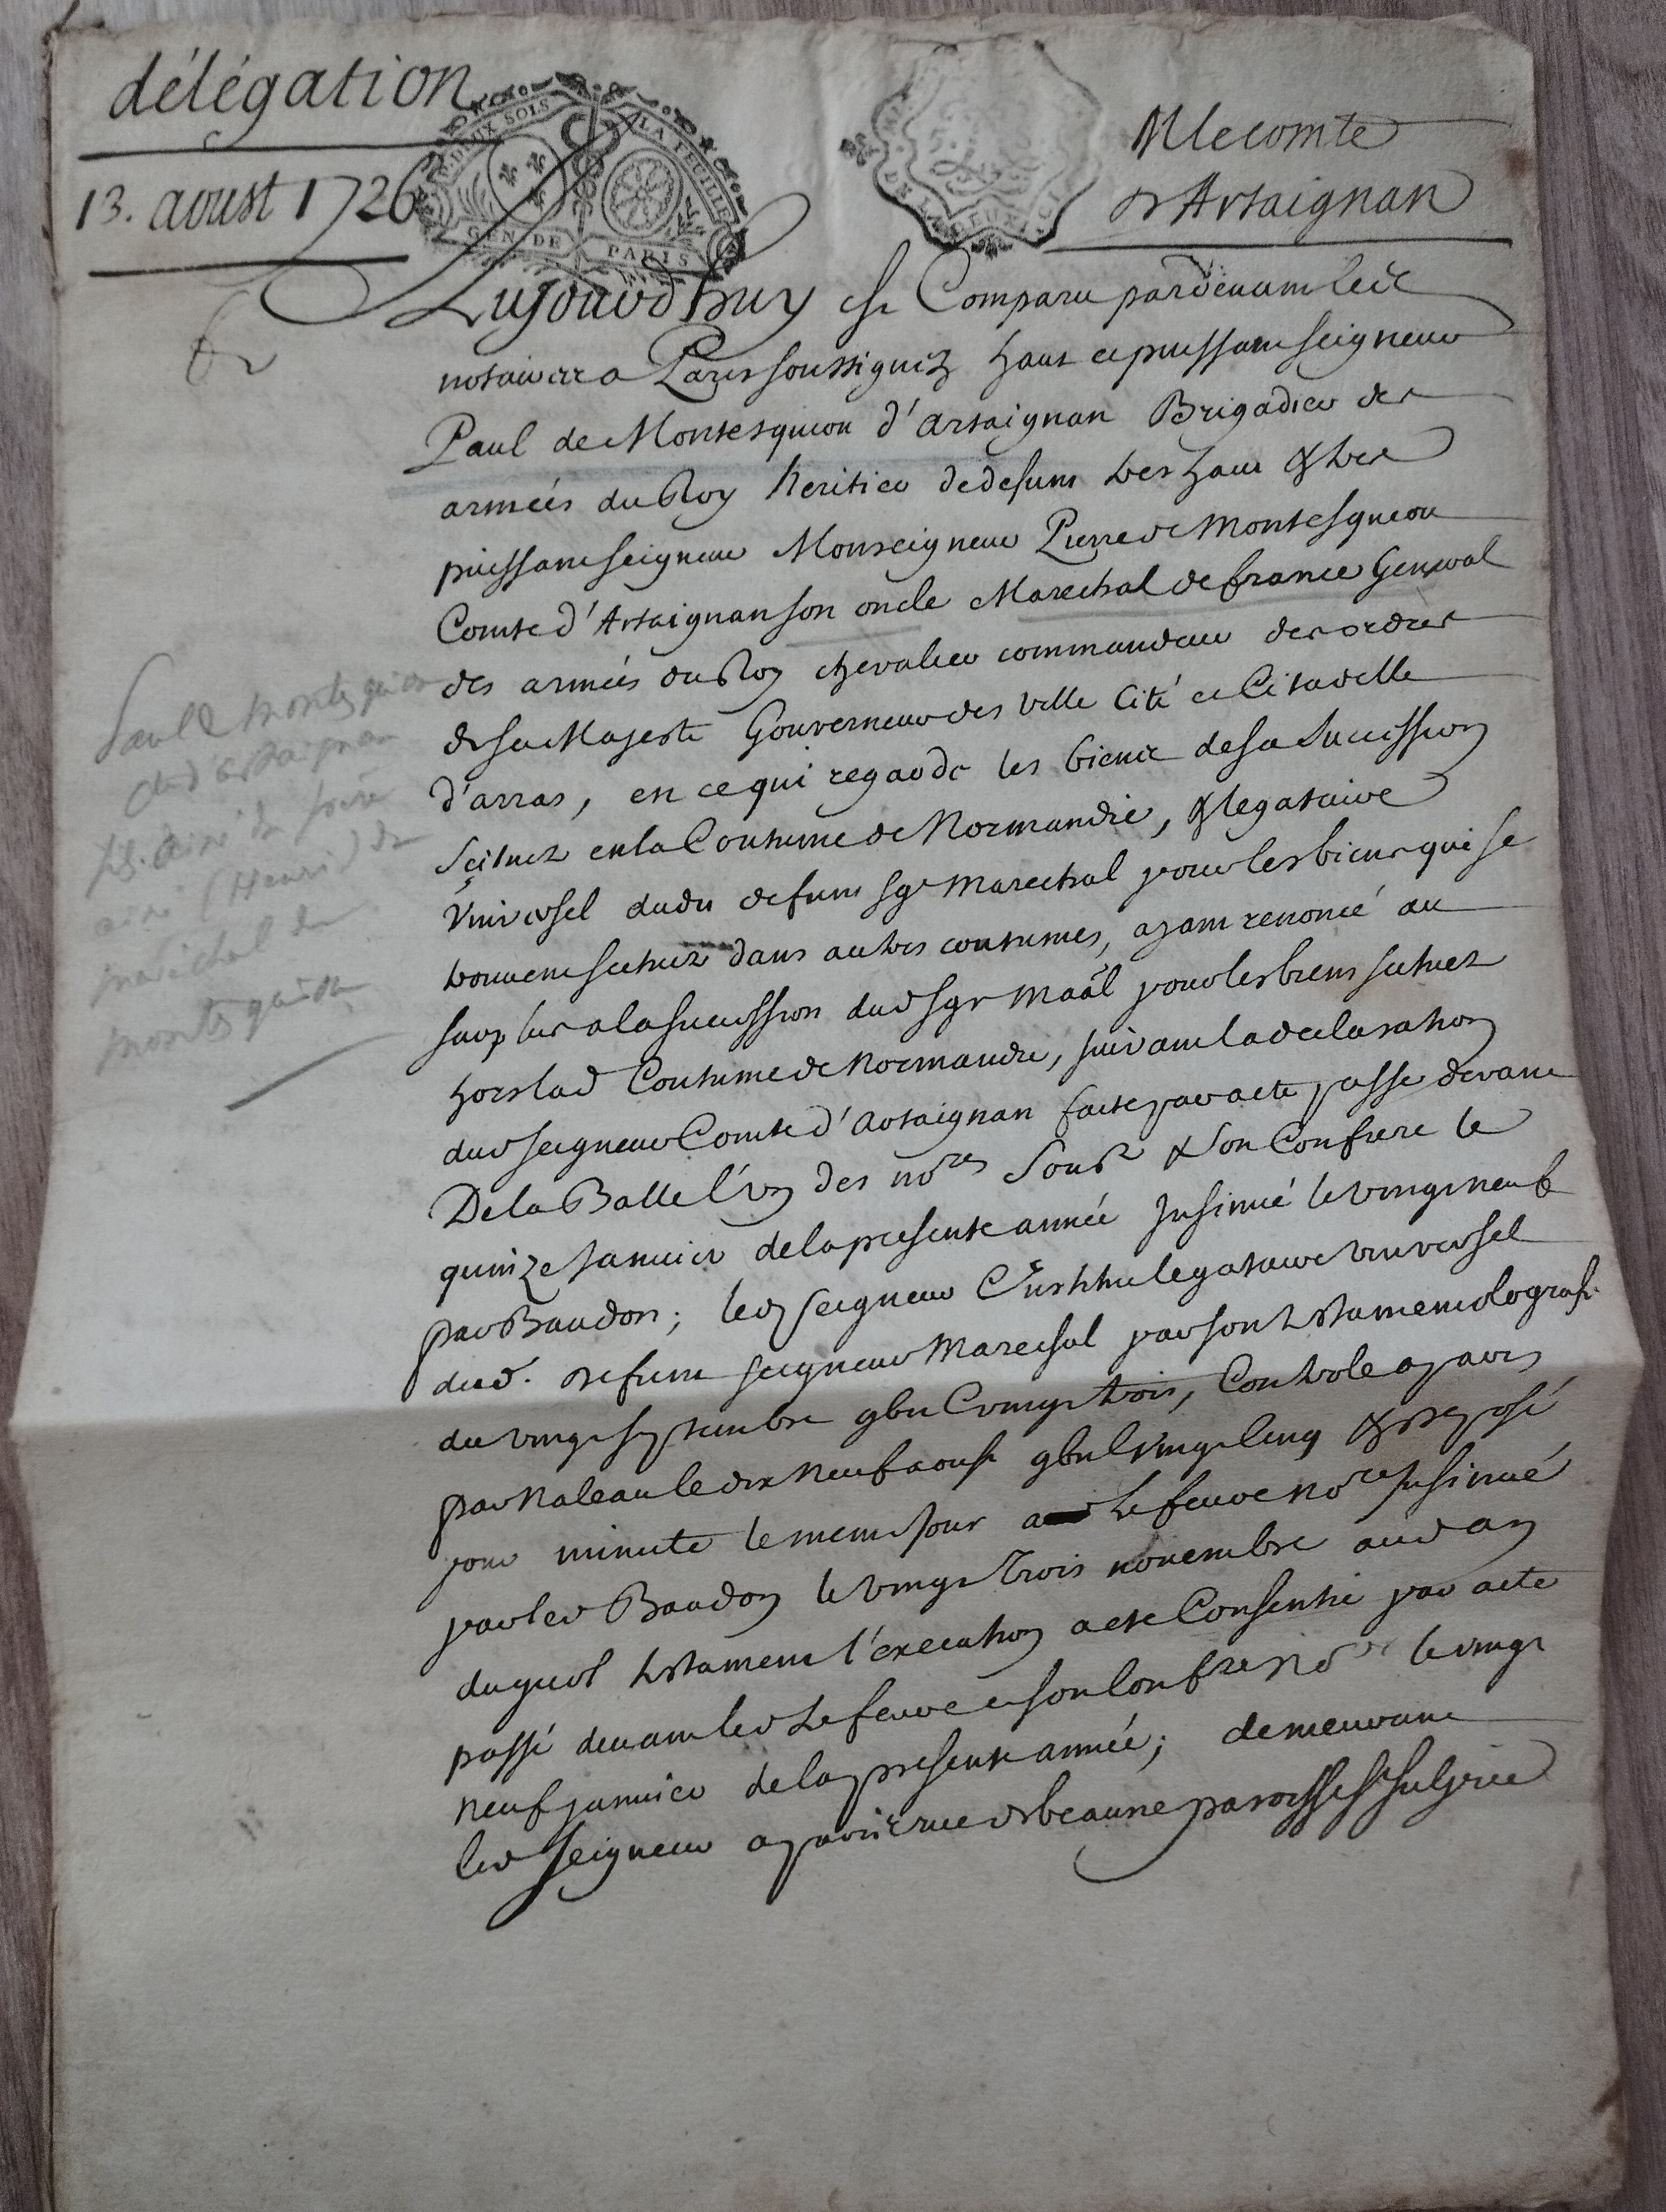 délégation
13. aoust 1726
DEUX SOLS LA FEUILLE
GEN DE PARIS
M le comte
d'Artaignan
Aujourd'huy est Comparu pardevant les
notaires a Paris soussignez haut et puissant seigneur
Paul de Montesquiou d'Artaignan Brigadier des
armées du Roy heritier de defunt tres haut & tres
puissant seigneur Monseigneur Pierre de Montesquiou
Comte d'Artaignan son oncle Marechal de france General
des armées du Roy chevalier commandeur des ordres
de sa Majesté Gouverneur des ville Cité et Citadelle
d'arras, en ce qui regarde les biens de sa succession
scituez en la Coutume de Normandie, & legataire
Universel dudit defunt sgr Marechal pour les biens qui se
trouvent scituez dans autres coutumes, ayant renoncé au
surplus a la succession dud sgr Maál pour les biens scituez
hors lad Coutume de Normandie, suivant la declaration
dud seigneur Comte d'Artaignan faite par acte passé devant
De la Balle l'un des no.res sous.z & son Confrere le
quinze Janvier de la presente année Insinué le vingt neuf
par Baudon; led seigneur Institué legataire universel
dud. defunt seigneur Marechal par son testament olografe
du vingt septembre gbij C vingt trois, Controlé a paris
par Naleau le dix neuf aoust gbij C vingt cinq & deposé
pour minute le meme jour a Lefeuvre no.re Insinué
par led Baudon le vingt trois novembre aud an
duquel testament l'execution a eté Consentie par acte
passé devant led Lefeuvre et son Confrere no.re le vingt
neuf janvier de la presente année; demeurant
led seigneur a paris rue de beaune paroisse St Sulpice
Paul de Montesquiou
cte d'artaignan
fils ainé du frère
ainé (Henri) du
maréchal de
montesquiou